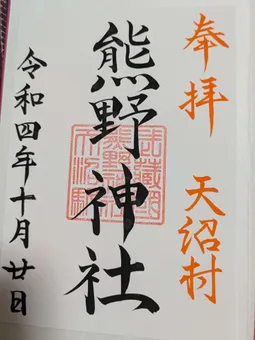 奉拝　天沼村
熊野神社
令和四年十月廿日